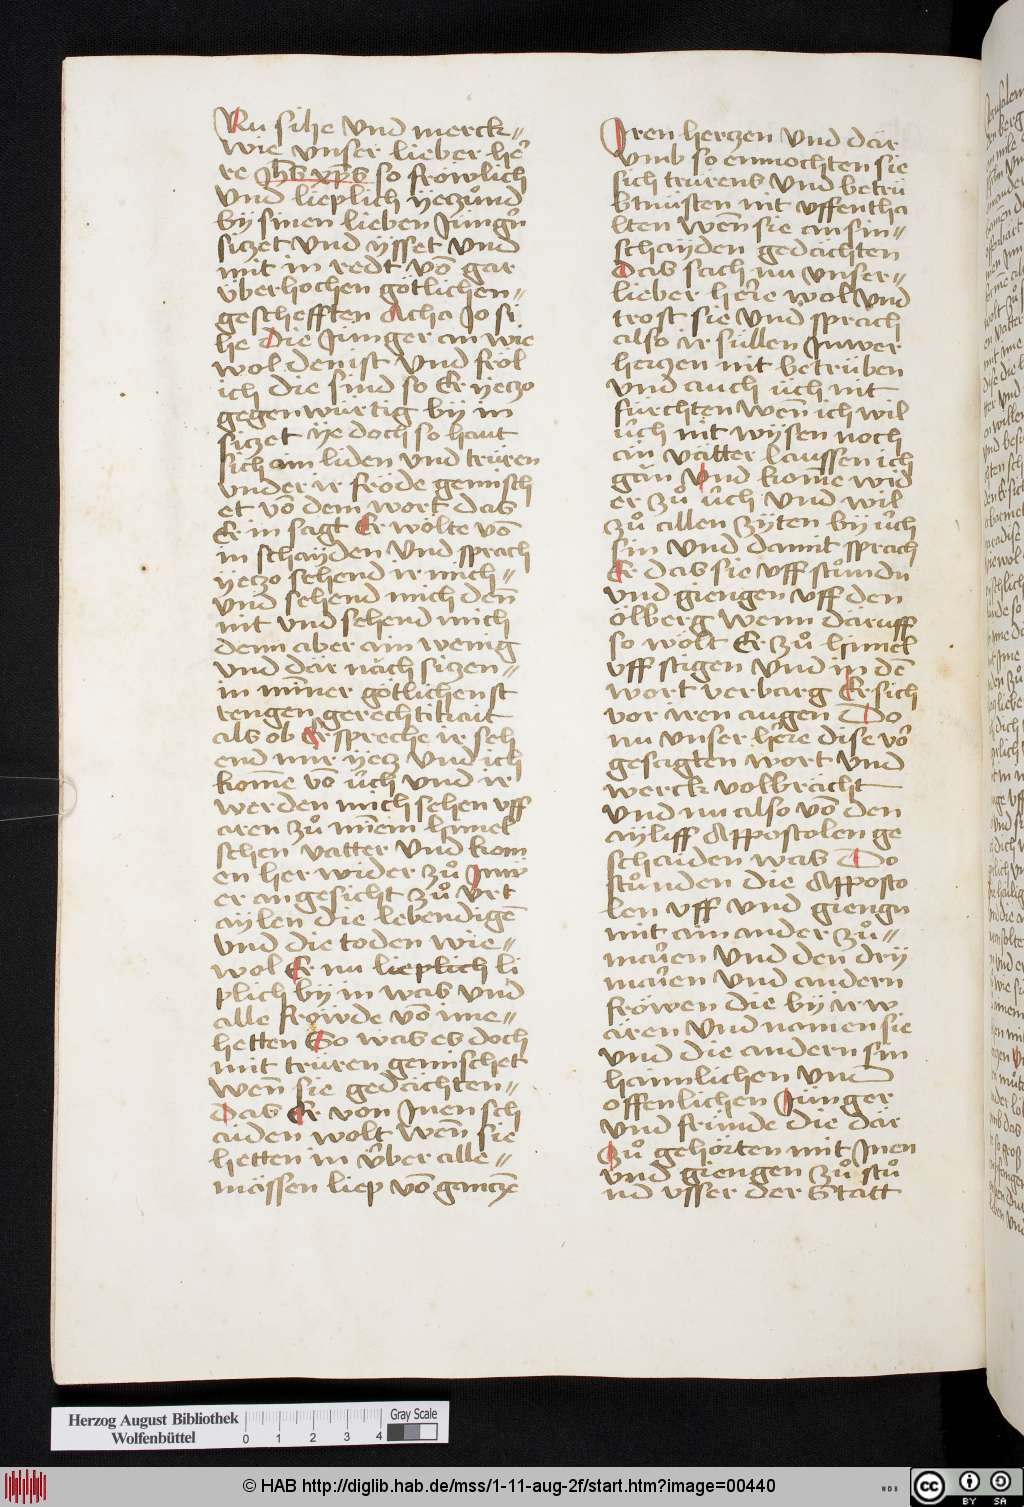 Nu sihe vnd merck„
wie vnser lieber her̄
re Jh̄s xp̄s so frowlich
vnd lieplich yeczůnd
by sinen lieben Jungn̄
siczet vnd ysset vnd
mit in redt võ gar
v̈berhochen götlichen„
geschefften Acha Jo si
he die Jünger an wie
wol denist vnd fröl
ich die sind so Er yeczo
gegenwürtig by in
siczet ye doch so haut
sich ain liden vnd truren
vnder ir fröde gemisch
et võ dem wort das
Er in sagt Er wölte võ
in schayden vnd sprach
yeczo sehend ir mich„
vnd sehend mich den̄
nit vnd sehend mich
denn aber ain wenig
vnd dar näch siczen„
in mīner götlichen st
rengen gerechtikait
als ob Er spreche ir seh
end mir yecz vnd ich
kom̄e võ u̍ch vnd ir
werden mich sehen vff
aren zů mīem himel
schen vatter vnd kom
en her wider zů Jnwr
er angesicht zů vrt
aylen die lebendigē
vnd die toden wie„
wol Er nu lieplich li
plich by in was vnd
alle fröwde võ ime„
hetten So was es doch
mit truren gemischet
wen̄ sie gedächten„
das Er von Jnen sch
aiden wolt wen̄ sie
hetten in v̍ber alle„
mässen liep võ ganczē
Jren herczen vnd dar
vmb so enmochten sie
sich trurens vnd betrü
btnüsten nit vffentha
lten wen̄ sie an sin„
schayden gedächten
Das sach nu vnser„
lieber her̄re wol vnd
trost sie vnd sprach
also ir süllen Juwer
herczen nit betrüben
vnd auch üch nit
fürchten wen̄ ich wil
u̍ch nit wysen noch
ain vätter laussen ich
gän vnd kom̄e wid
er zů u̍ch vnd wil
zů allen zyten by u̍ch
sin vnd damit sprach
Er das sie vff stůndn̄
vnd giengen vff den
ölberg wenn däruff
so wölt Er zů himel
vff stigen vnd in dē
wort verbarg Er sich
vor iren augen Do
nu vnser her̄re dise vō
gesagten wort vnd
werck volbrächt
vnd nu also võ den
ayliff Appostolen ge
schaiden was Do
stůnden die Apposto
len vff vnd giengn̄
mit ain ander zů„
marien vnd den dry
marien vnd andern
fröwen die by ir w
ären vnd namen sie
vnd die andern sin
haimlichen vnd
offenlichen Jünger
vnd fründe die där
Zů gehörten mit Jnen
vnd giengen zů stů
nd vsser der Statt
Herzog August Bibliothek
Wolfenbüttel
0 1 2 3 4
Gray Scale
© HAB http://diglib.hab.de/mss/1-11-aug-2f/start.htm?image=00440
WDB
cc BY SA